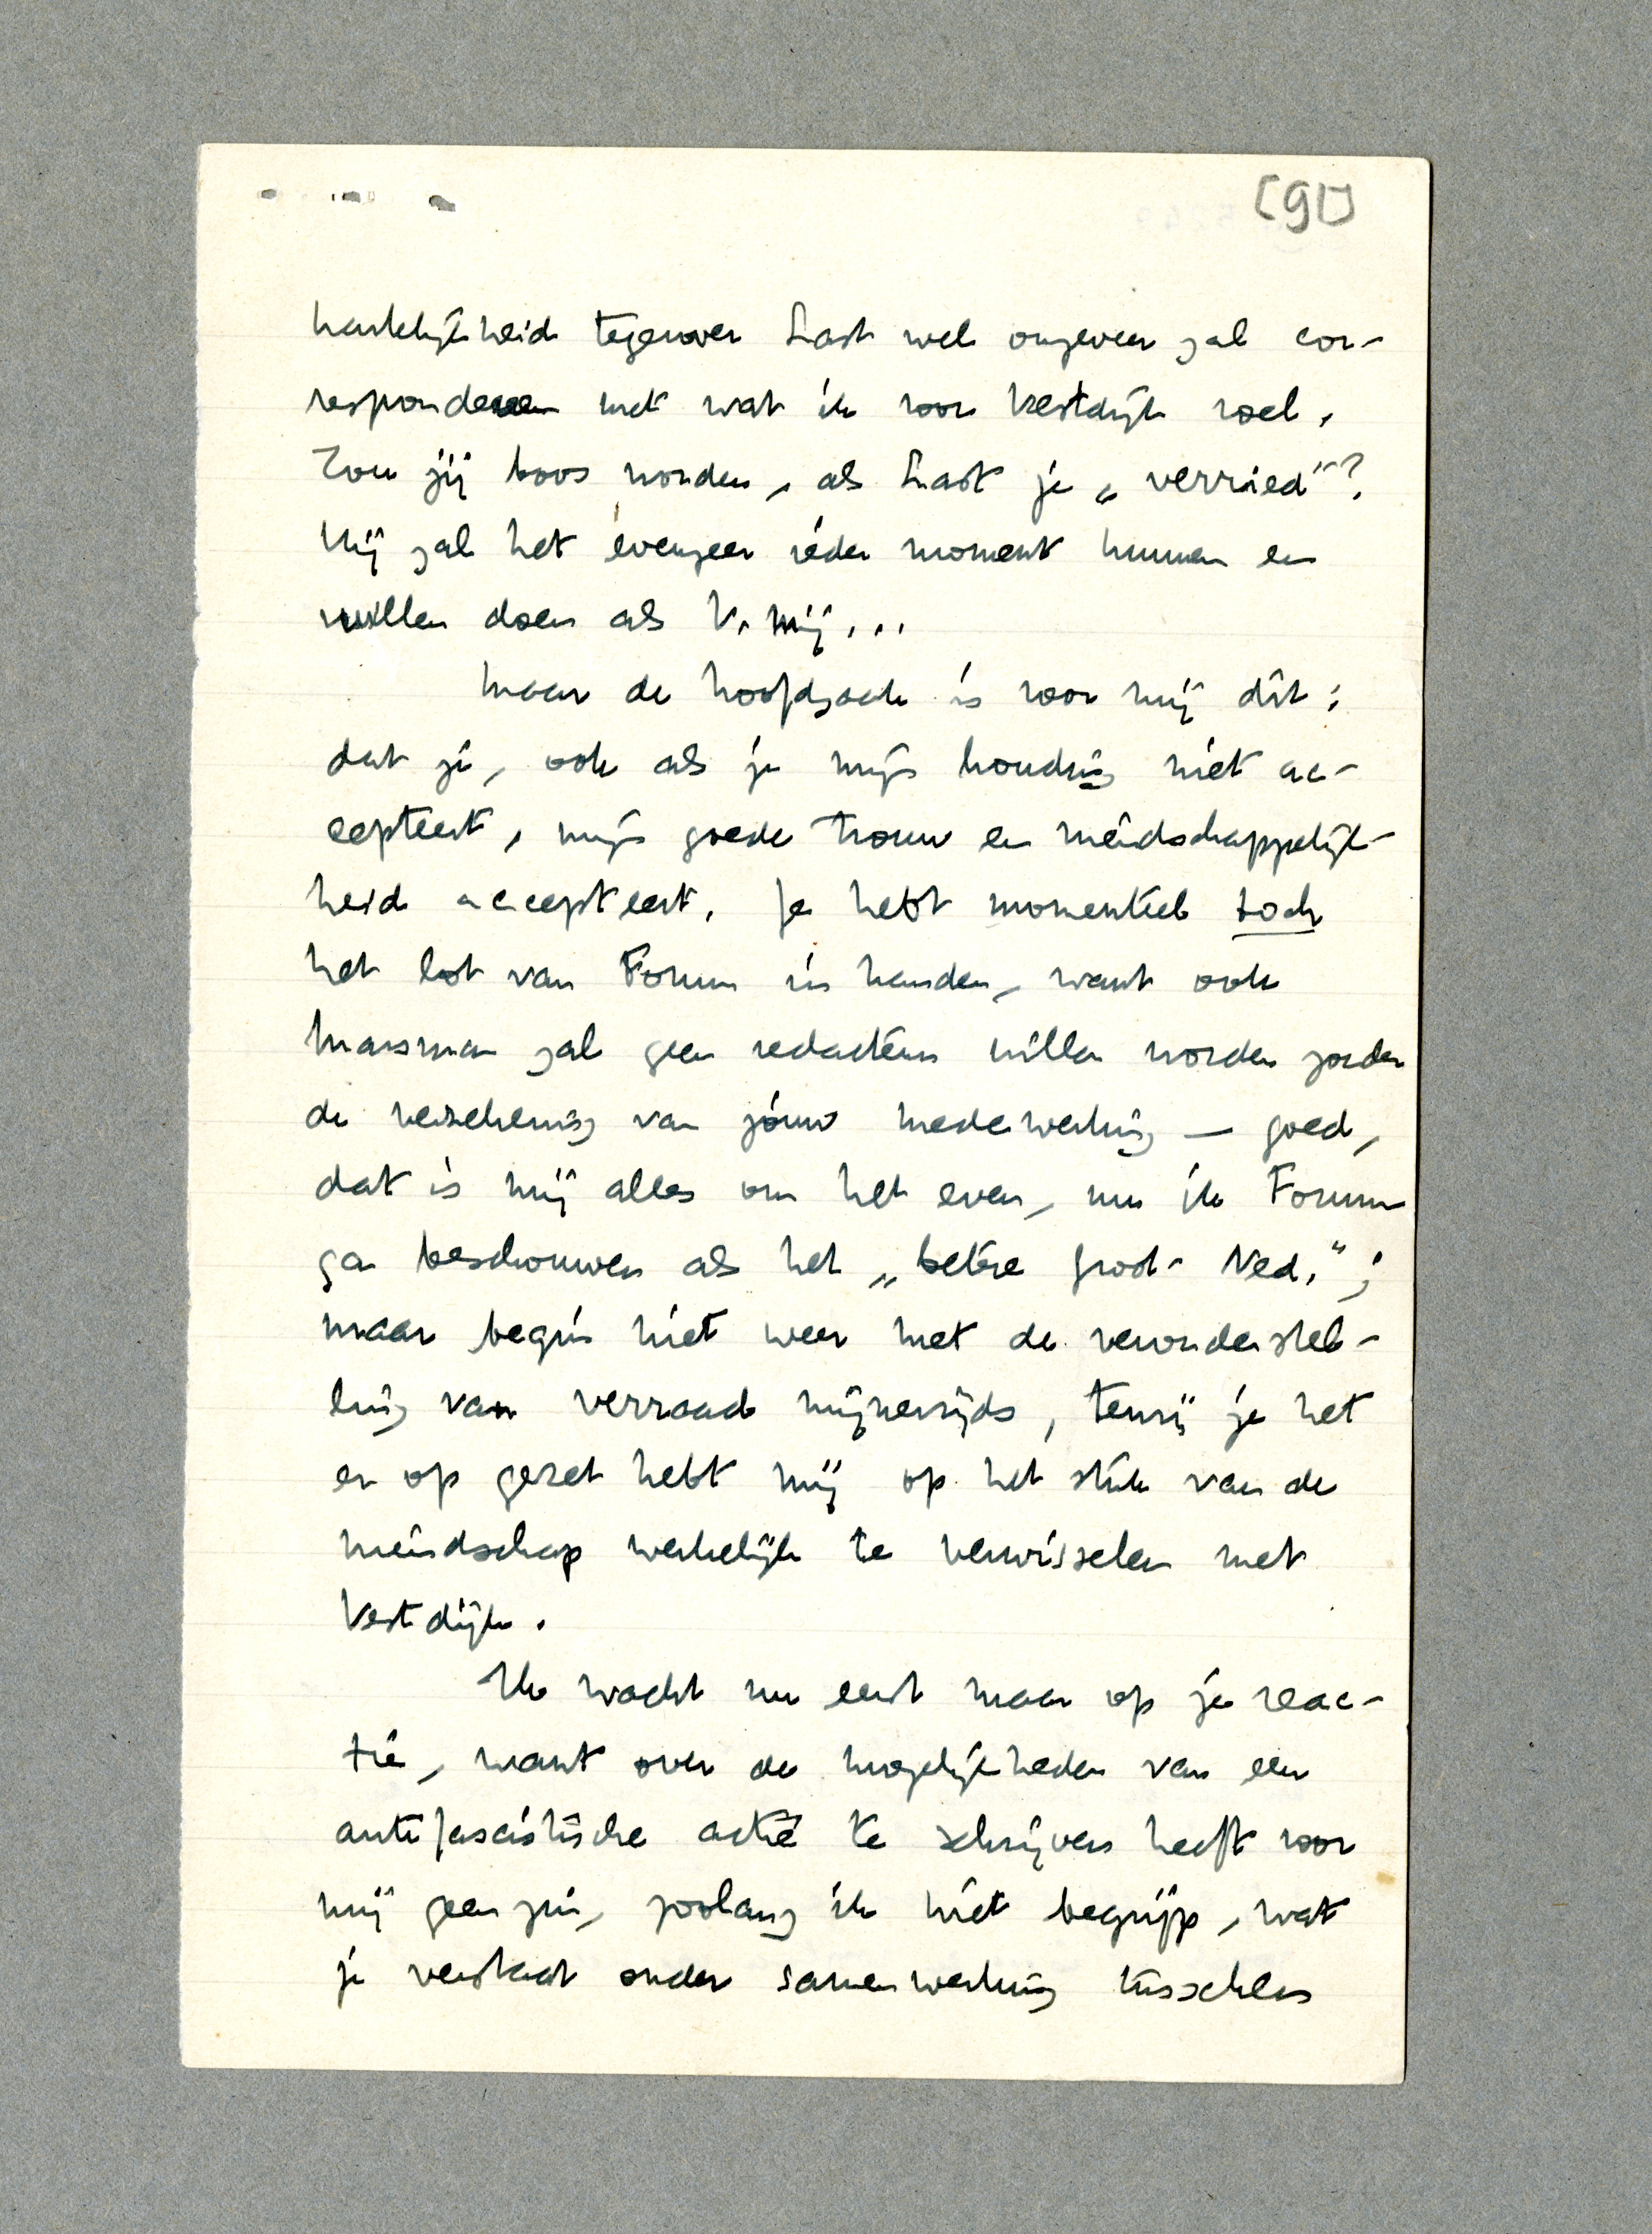 [91]
hartelijkheid tegenover Last wel ongeveer zal cor-
respondeeren met wat ik voor Vestdijk voel.
Zou jij boos worden, als Last je „verried"?
Hij zal het évenzeer ieder moment kunnen en
willen doen als V. mij...
Maar de hoofdzaak is voor mij dit:
dat je, ook als je mijn houding niet ac-
cepteert, mijn goede trouw en vriendschappelijk-
heid accepteert. Je hebt momenteel toch
het lot van Forum in handen, want ook
Marsman zal geen redacteur willen worden zonder
de verzekering van jóuw medewerking — goed,
dat is mij alles om het even, nu ik Forum
ga beschouwen als het „betere Groot-Ned.";
maar begin niet weer met de veronderstel-
ling van verraad mijnerzijds, tenzij je het
er op gezet hebt mij op het stuk van de
vriendschap werkelijk te verwisselen met
Vestdijk.
Ik wacht nu eerst maar op je reac-
tie, want over de mogelijkheden van een
antifascistische actie te schrijven heeft voor
mij geen zin, zoolang ik niet begrijp, wat
je verstaat onder samenwerking tusschen